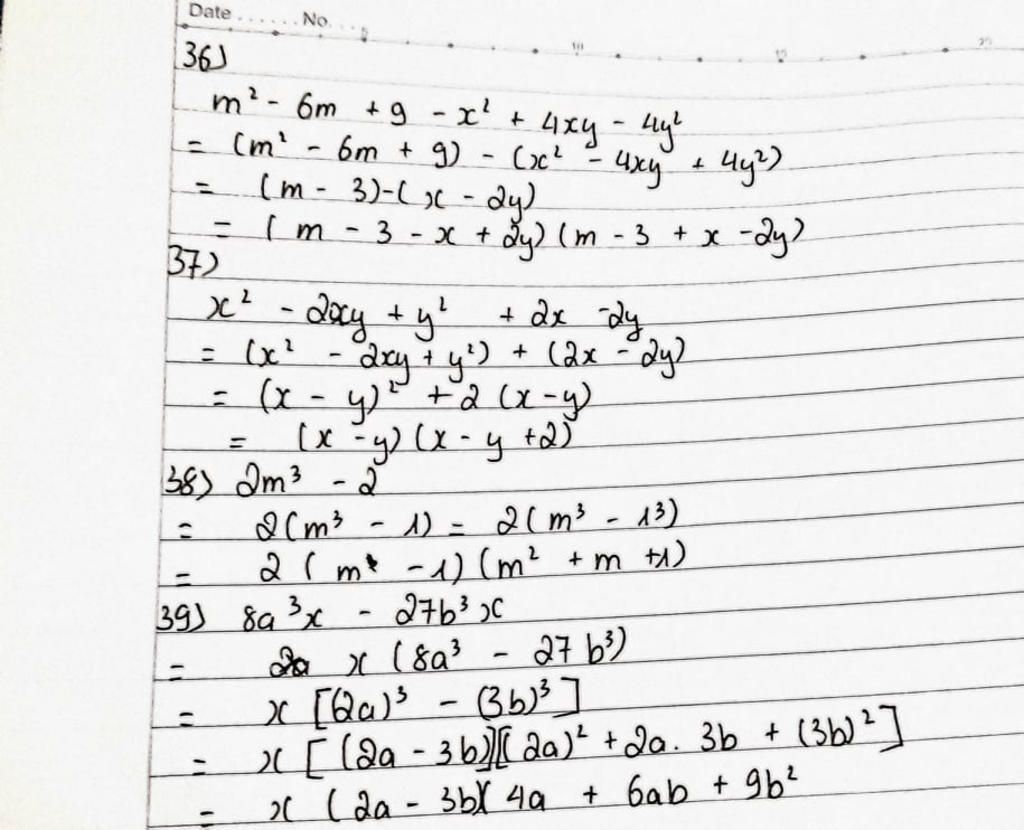 Date ...... No. ...
5 10 15 20
36)
m² - 6m + 9 - x² + 4xy - 4y²
= (m² - 6m + 9) - (x² - 4xy + 4y²)
= (m - 3)-(x - 2y)
= (m - 3 - x + 2y)(m - 3 + x - 2y)
37)
x² - 2xy + y² + 2x - 2y
= (x² - 2xy + y²) + (2x - 2y)
= (x - y)² + 2 (x - y)
= (x - y)(x - y + 2)
38) 2m³ - 2
= 2(m³ - 1) = 2(m³ - 1³)
= 2 (m - 1)(m² + m + 1)
39) 8a³x - 27b³x
= x (8a³ - 27b³)
= x [(2a)³ - (3b)³]
= x [(2a - 3b)][(2a)² + 2a. 3b + (3b)²]
= x (2a - 3b)(4a + 6ab + 9b²